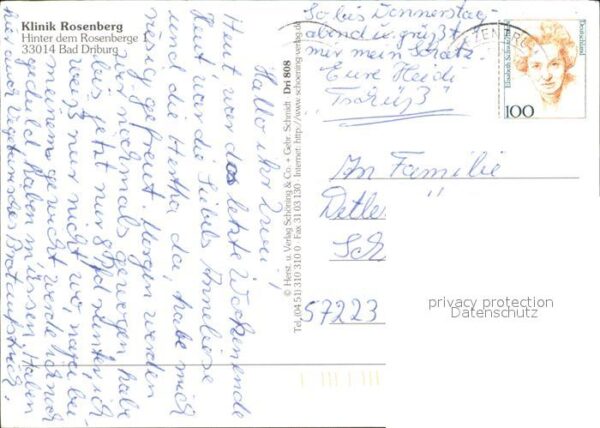 Klinik Rosenberg
Hinter dem Rosenberge 1
33014 Bad Driburg
Hallo ihr Zwei!
Heut war das letzte Wochenende
Heut war die Liebe Anneliese
und die Hertha da, habe mich
riesig gefreut. Morgen werden
wir nochmals gewogen, habe
bis jetzt nur 8 Pfd runter, ich
weiß nur nicht wo, naja bei
meinem gewicht werde ich noch
geduld haben müssen. Haben
hier auch Vegetarisches Brotaufstrich.
So bis Donnerstag-
abend u. grüßt
mir mein Schatz.
Eure Heidi
"Tschüß"
© Herst. u. Verlag Schöning & Co. + Gebr. Schmidt Dri 808
Tel. (04 51) 310 310 0 Fax 31 03 130 Internet: http://www.schoening-verlag.de
Elisabeth Schwarzhaupt
Deutschland
100
An Familie
"
Detle
Sch
57223
privacy protection
Datenschutz